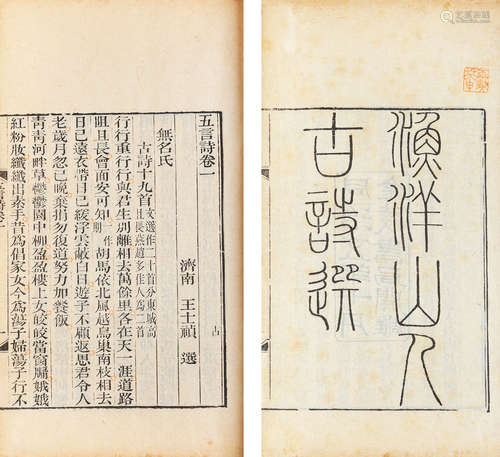 漁洋山人
古詩選
五言詩卷一
濟南 王士禎 選
無名氏
古詩十九首 文選作二十首分東城高且長燕趙多佳人為二首
行行重行行與君生別離相去萬餘里各在天一涯道路
阻且長會面安可知一作期胡馬依北風越鳥巢南枝相去
日已遠衣帶日已緩浮雲蔽白日遊子不顧返思君令人
老歲月忽已晚棄捐勿復道努力加餐飯
青青河畔草鬱鬱園中柳盈盈樓上女皎皎當窗牖娥娥
紅粉妝纖纖出素手昔為倡家女今為蕩子婦蕩子行不
古